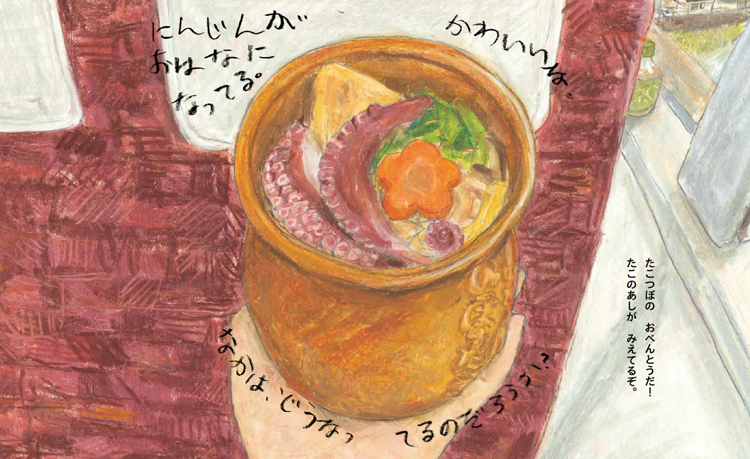 にんじんが
おはなに
なってる。
かわいいな。
たこつぼの　おべんとうだ！
たこのあしが　みえてるぞ。
なかは、どうなっ
てるのだろうか？